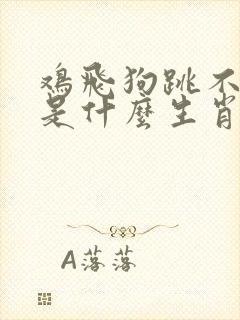 鸡飛狗跳不
是什麼生肖
A落落